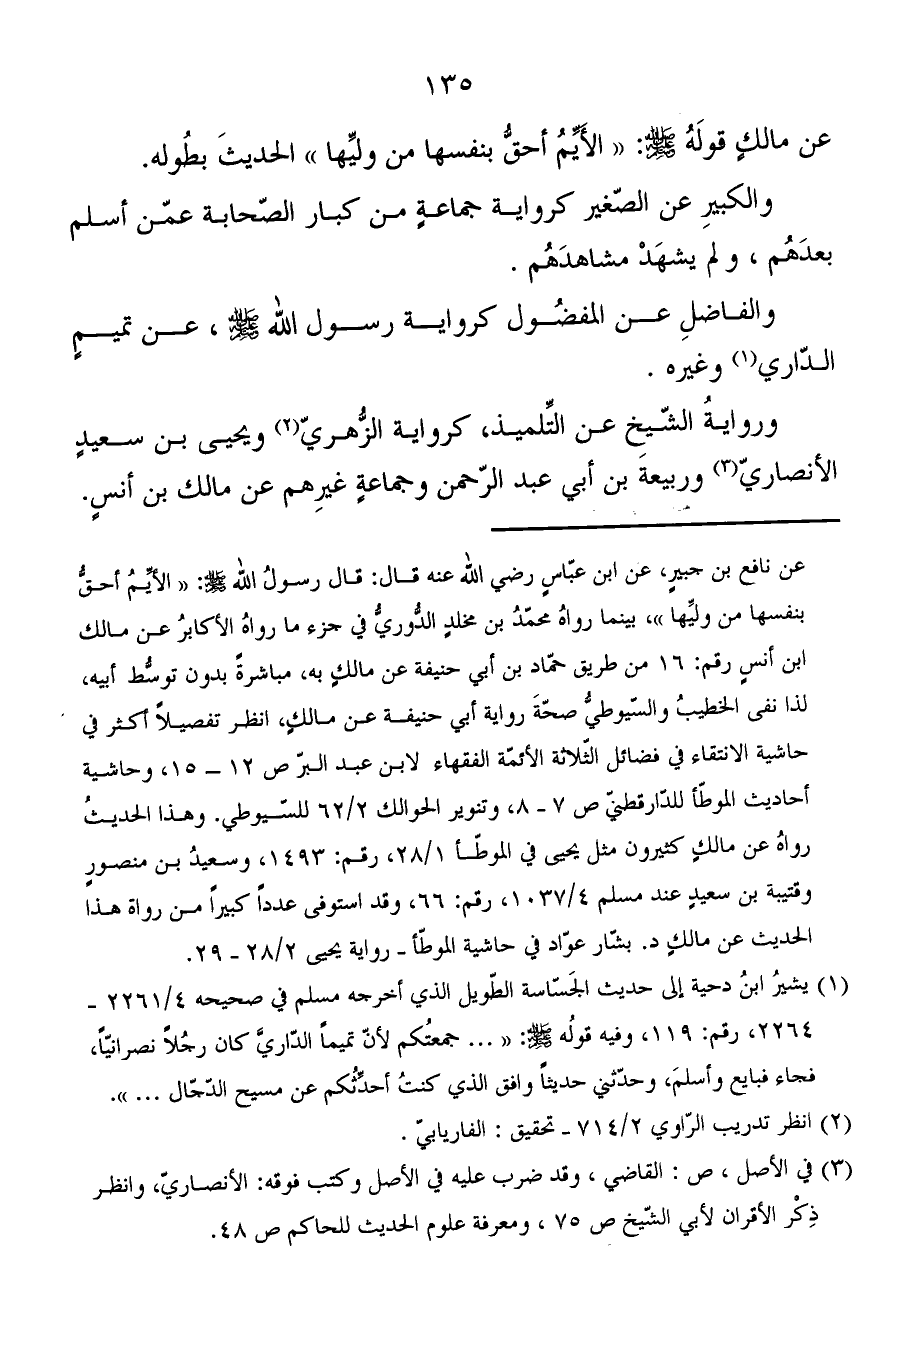 ١٣٥
عن مالكٍ قولَهُ ﷺ: « الأَيِّمُ أحقُّ بنفسها من وليِّها » الحديثَ بطُوله.
والكبيرِ عن الصّغير كرواية جماعةٍ من كبار الصّحابة عمّن أسلم
بعدَهُم ، و لم يشهَدْ مشاهدَهُم .
والفاضلِ عن المفضُول كرواية رسول الله ﷺ ، عن تميمٍ
الدّاري(١) وغيره .
وروايةُ الشّيخ عن التِّلميذ، كرواية الزُّهريّ(٢) ويحيى بن سعيدٍ
الأنصاريّ(٣) وربيعةَ بن أبي عبد الرّحمن وجماعةٍ غيرِهم عن مالك بن أنسٍ.
عن نافع بن جبيرٍ، عن ابن عبّاسٍ رضي الله عنه قال: قال رسولُ الله ﷺ: « الأيِّمُ أحقُّ
بنفسها من وليِّها »، بينما رواهُ محمّدُ بن مخلدٍ الدُّوريُّ في جزء ما رواهُ الأكابرُ عن مالك
ابن أنسٍ رقم: ١٦ من طريق حمّاد بن أبي حنيفة عن مالكٍ به، مباشرةً بدون توسُّط أبيه،
لذا نفى الخطيبُ والسّيوطيُّ صحّةَ رواية أبي حنيفة عن مالكٍ، انظر تفصيلاً أكثر في
حاشية الانتقاء في فضائل الثّلاثة الأئمّة الفقهاء لابن عبد البرّ ص ١٢ – ١٥، وحاشية
أحاديث الموطّأ للدّارقطنيّ ص ٧ - ٨، وتنوير الحوالك ٦٢/٢ للسّيوطي. وهذا الحديثُ
رواهُ عن مالكٍ كثيرون مثل يحيى في الموطّأ ٢٨/١، رقم: ١٤٩٣، وسعيدُ بن منصورٍ
وقتيبة بن سعيدٍ عند مسلم ١٠٣٧/٤، رقم: ٦٦، وقد استوفى عدداً كبيراً من رواة هذا
الحديث عن مالكٍ د. بشّار عوّاد في حاشية الموطّأ ـ رواية يحيى ٢٨/٢ - ٢٩.
(١) يشيرُ ابنُ دحية إلى حديث الجَسّاسة الطّويل الذي أخرجه مسلم في صحيحه ٢٢٦١/٤ -
٢٢٦٤، رقم: ١١٩، وفيه قولُه ﷺ: « ... جمعتُكم لأنّ تميماً الدّاريَّ كان رجُلاً نصرانيّاً،
فجاء فبايع وأسلمَ، وحدّثني حديثاً وافق الذي كنتُ أحدِّثُكم عن مسيح الدّجّال ... ».
(٢) انظر تدريب الرّاوي ٧١٤/٢ ـ تحقيق : الفاريابيّ .
(٣) في الأصل ، ص : القاضي ، وقد ضرب عليه في الأصل وكتب فوقه: الأنصاريّ، وانظر
ذِكْر الأقران لأبي الشّيخ ص ٧٥ ، ومعرفة علوم الحديث للحاكم ص ٤٨.